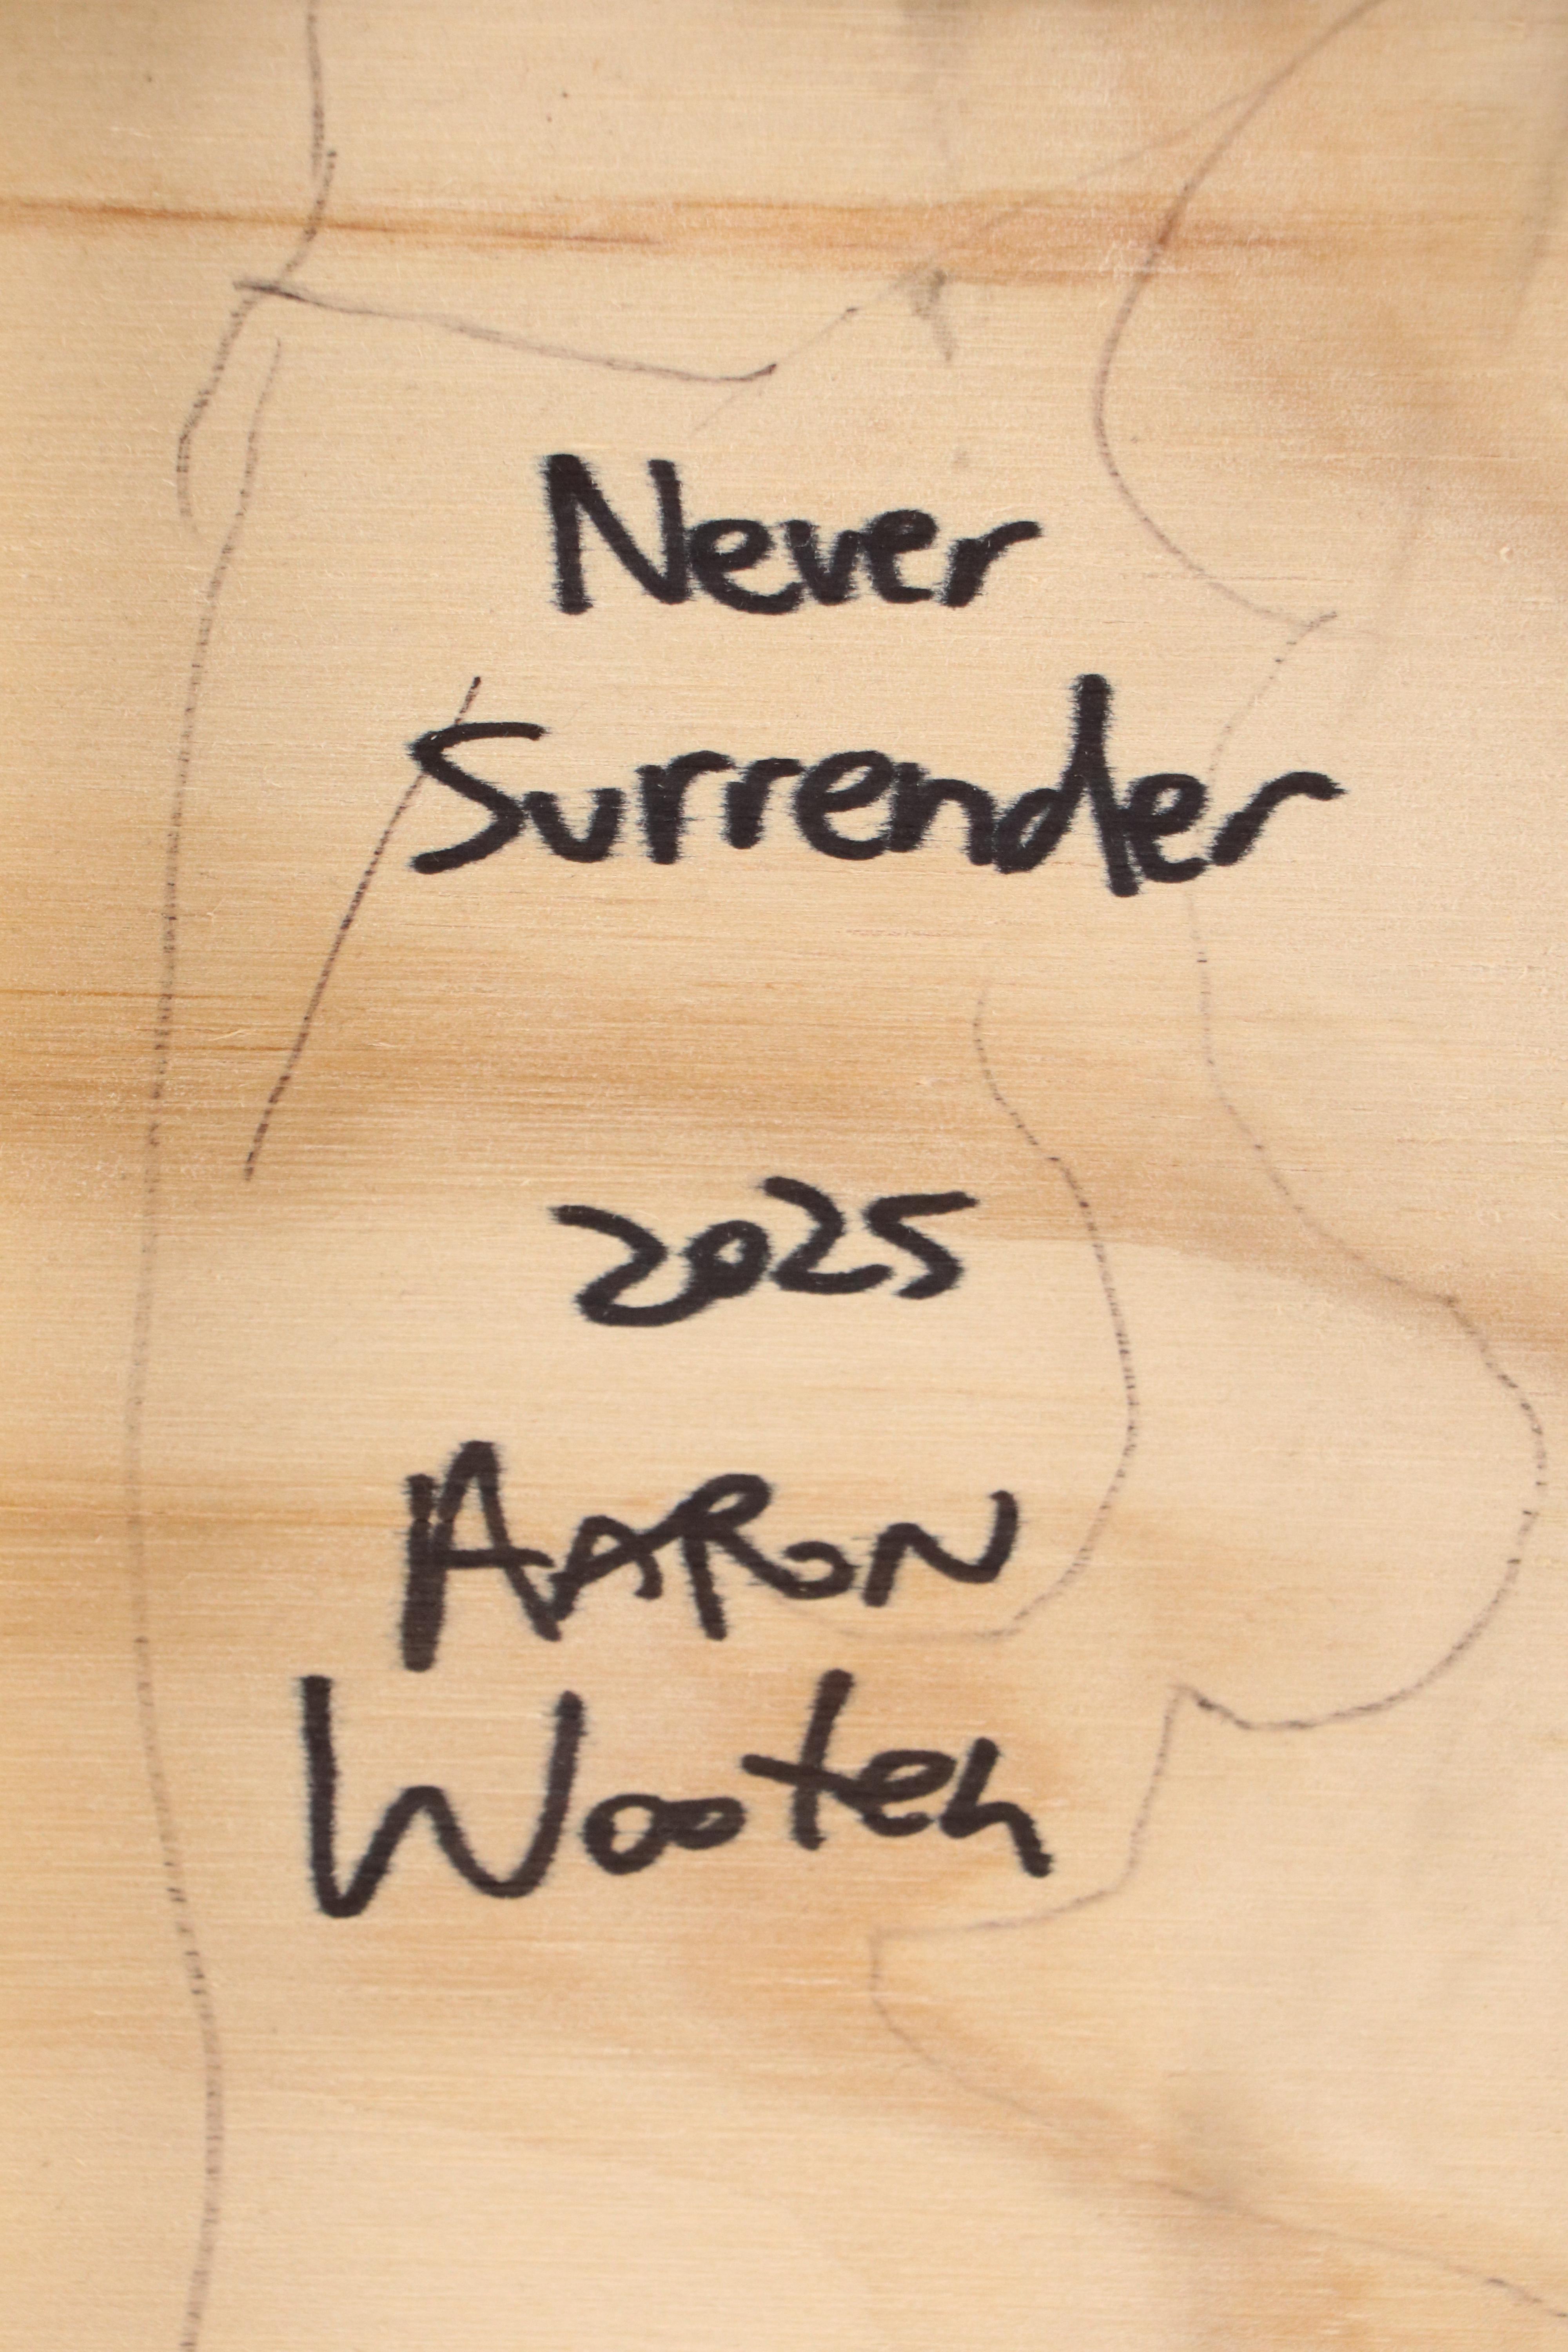 Never
Surrender
2025
AARON
Wooten